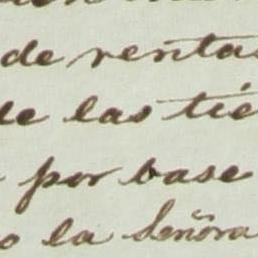 de rentas
de las tie
por base
o la Señora